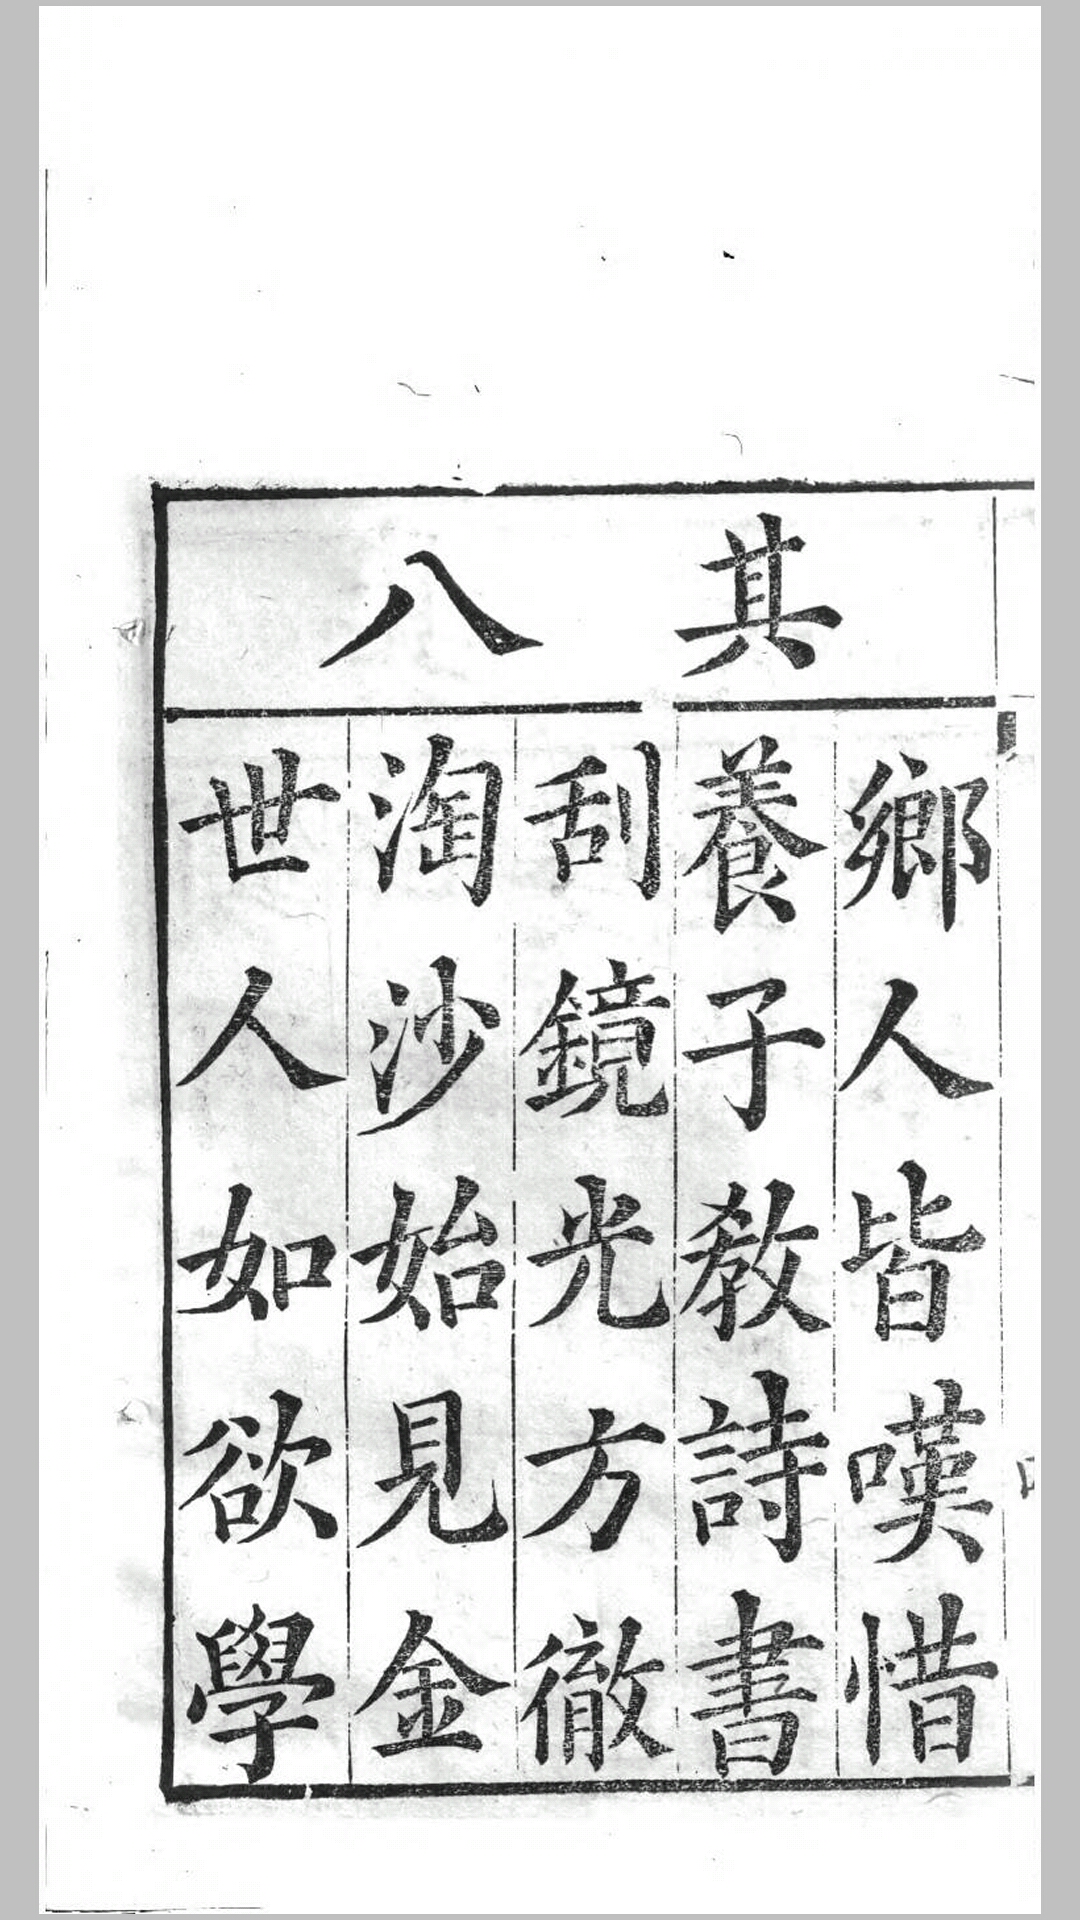 其八
鄉人皆嘆惜
養子教詩書
刮鏡光方徹
淘沙始見金
世人如欲學